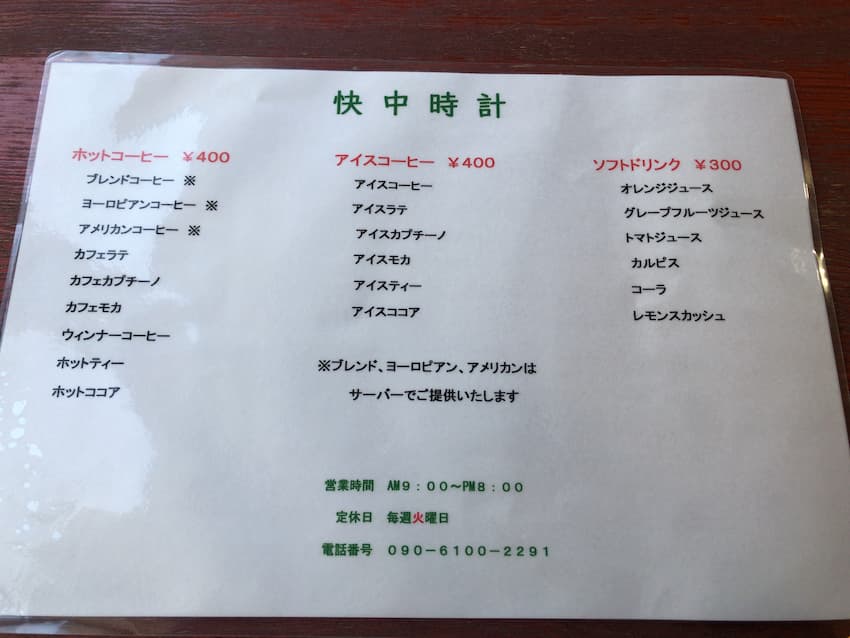 快中時計
ホットコーヒー ￥400
ブレンドコーヒー ※
ヨーロピアンコーヒー ※
アメリカンコーヒー ※
カフェラテ
カフェカプチーノ
カフェモカ
ウィンナーコーヒー
ホットティー
ホットココア
アイスコーヒー ￥400
アイスコーヒー
アイスラテ
アイスカプチーノ
アイスモカ
アイスティー
アイスココア
ソフトドリンク ￥300
オレンジジュース
グレープフルーツジュース
トマトジュース
カルピス
コーラ
レモンスカッシュ
※ブレンド、ヨーロピアン、アメリカンは
サーバーでご提供いたします
営業時間 AM９：００～PM８：００
定休日 毎週火曜日
電話番号 ０９０－６１００－２２９１